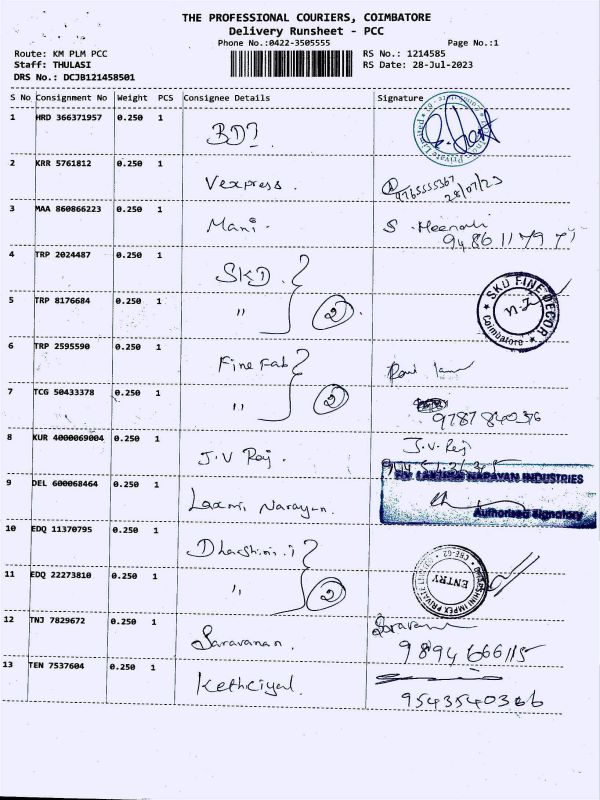 THE PROFESSIONAL COURIERS, COIMBATORE
Delivery Runsheet - PCC
Phone No.:0422-3505555 Page No.:1
Route: KM PLM PCC RS No.: 1214585
Staff: THULASI RS Date: 28-Jul-2023
DRS No.: DCJB121458501
S No Consignment No Weight PCS Consignee Details Signature
1 HRD 366371957 0.250 1
BDI
2 KRR 5761812 0.250 1
Vexpress. 9765555367
28/07/23
3 MAA 860866223 0.250 1
Mani. S. Meenati
9486117977
4 TRP 2024487 0.250 1
SKD
5 TRP 8176684 0.250 1
" 2 SKD FINE DECOR
Coimbatore
6 TRP 2595590 0.250 1
Fine Fab
7 TCG 50433378 0.250 1
" 2 9787840376
8 KUR 4000069004 0.250 1
J.V Raj. J.V. Raj
9 DEL 600068464 0.250 1
For LAKSHMI NARAYAN INDUSTRIES
Laxmi Narayan. Authorised Signatory
10 EDQ 11370795 0.250 1
Dharshini.i
11 EDQ 22273810 0.250 1
" 2 DHARSHINI IMPEX PRIVATE LIMITED
CBE-02
ENTRY
12 TNJ 7829672 0.250 1
Saravanan. Saravan
9894666115
13 TEN 7537604 0.250 1
9543540366